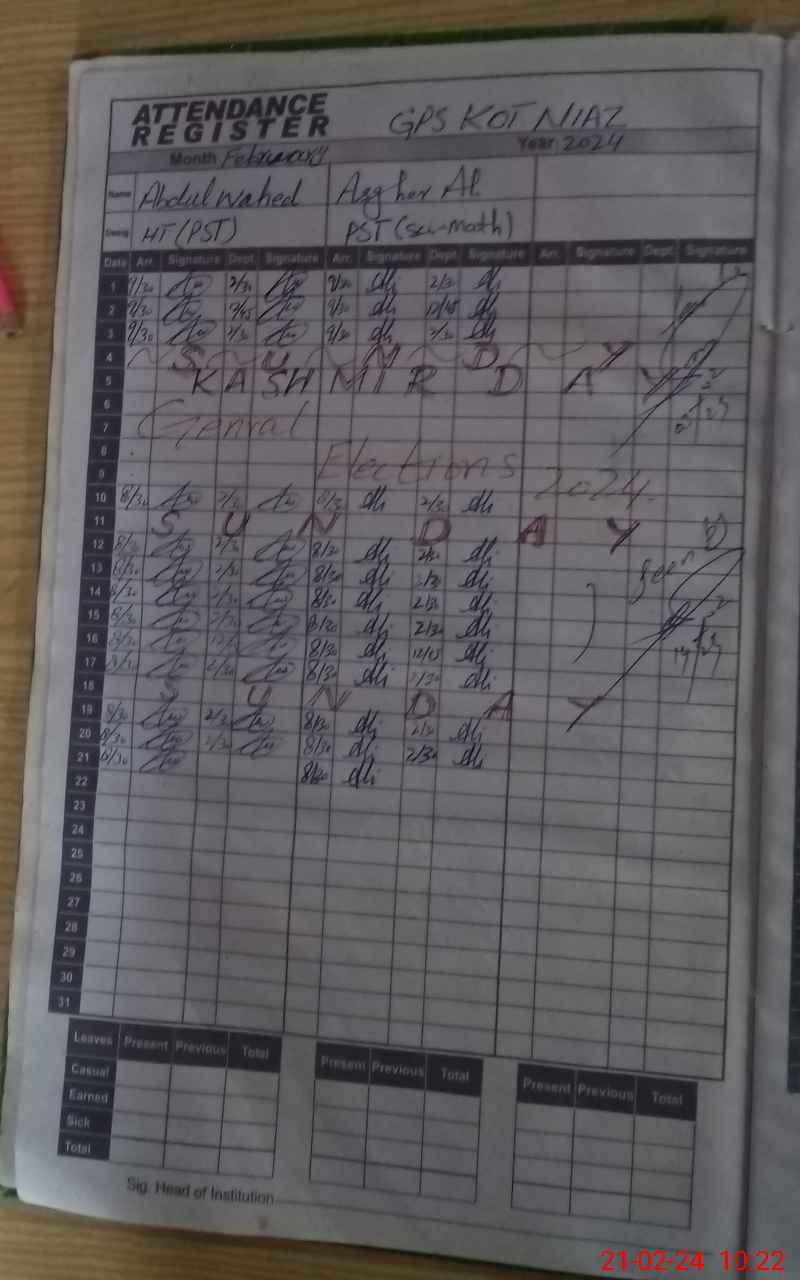 ATTENDANCE
REGISTER
GPS KOT NIAZ
Month February Year 2024
Name Abdul Wahed Asghar Al
Desig HT (PST) PST (sci-math)
Date Arr. Signature Dept Signature Arr. Signature Dept Signature Arr. Signature Dept Signature
1 9/30 2/30 9/30 2/30
2 9/30 9/30 12/45
3 9/30 2/30 9/30 2/30
4 S U N D A Y
5 KASHMIR DAY
6
7 Genral
8
9 Elections 2024
10 8/30 2/30 8/30 2/30
11 S U N D A Y
12 8/30 2/30 8/30 2/30
13 8/30 2/30 8/30 2/30
14 8/30 2/30 8/30 2/30
15 8/30 2/30 8/30 2/30
16 8/30 8/30 12/15
17 8/30 2/30 8/30
18 S U N D A Y
19 8/30 2/30 8/30 2/30
20 8/30 2/30 8/30 2/30
21 8/30 8/30
22
23
24
25
26
27
28
29
30
31
Seen
Leaves Present Previous Total Present Previous Total Present Previous Total
Casual
Earned
Sick
Total
Sig. Head of Institution
21-02-24 10:22